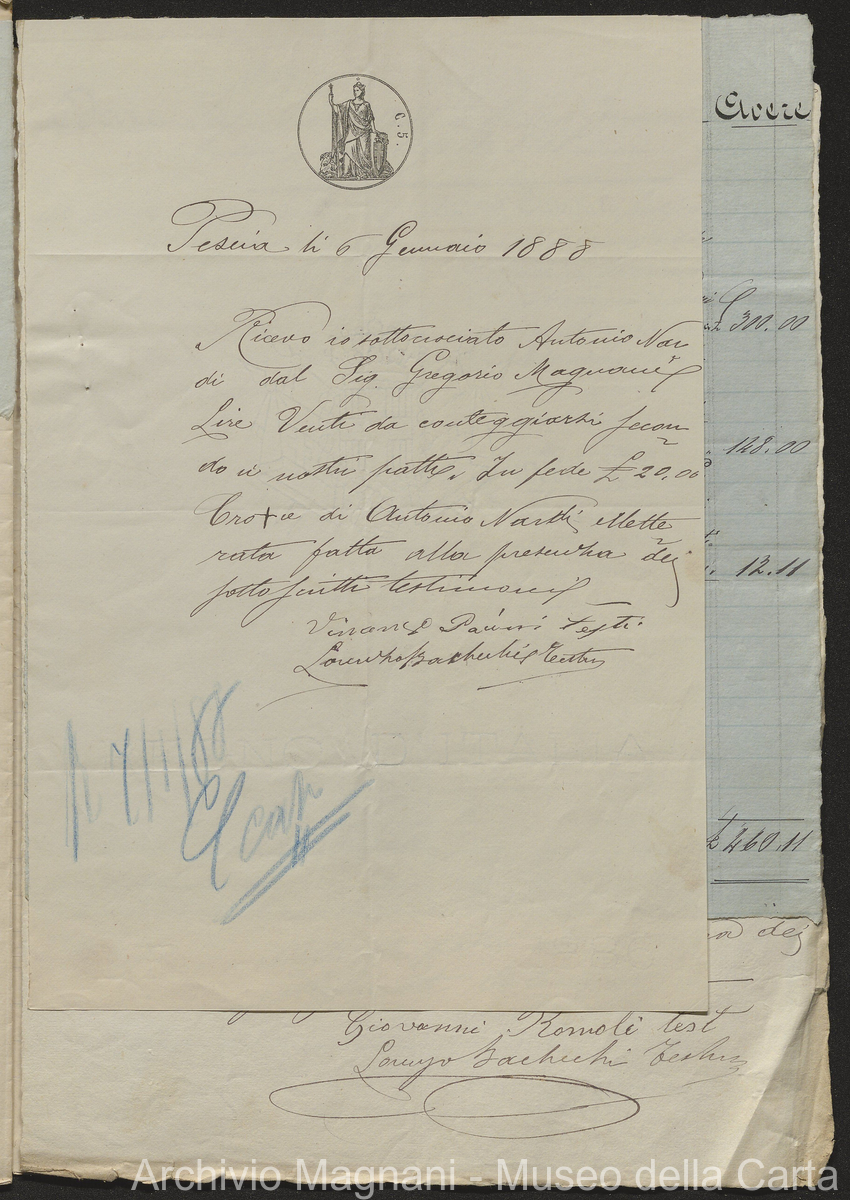 C. 5.
Pescia li 6 Gennaio 1888
Ricevo io sottocisciato Antonio Nar
di dal Sig. Gregorio Magnani
Lire Venti da conteggiarsi secon
do i nostri patti. In fede £ 20.00
Cro+ce di Antonio Nardi illette
rato fatta alla presenzha dei
sotto scritti testimoni
Pacini Testi.
Lorenzho Bachechi Testim
li 7/1/88
Avere
£ 300.00
148.00
12.11
£ 460.11
dei
Giovanni Romoli test
Lorenzo Bachechi Testim
Archivio Magnani - Museo della Carta